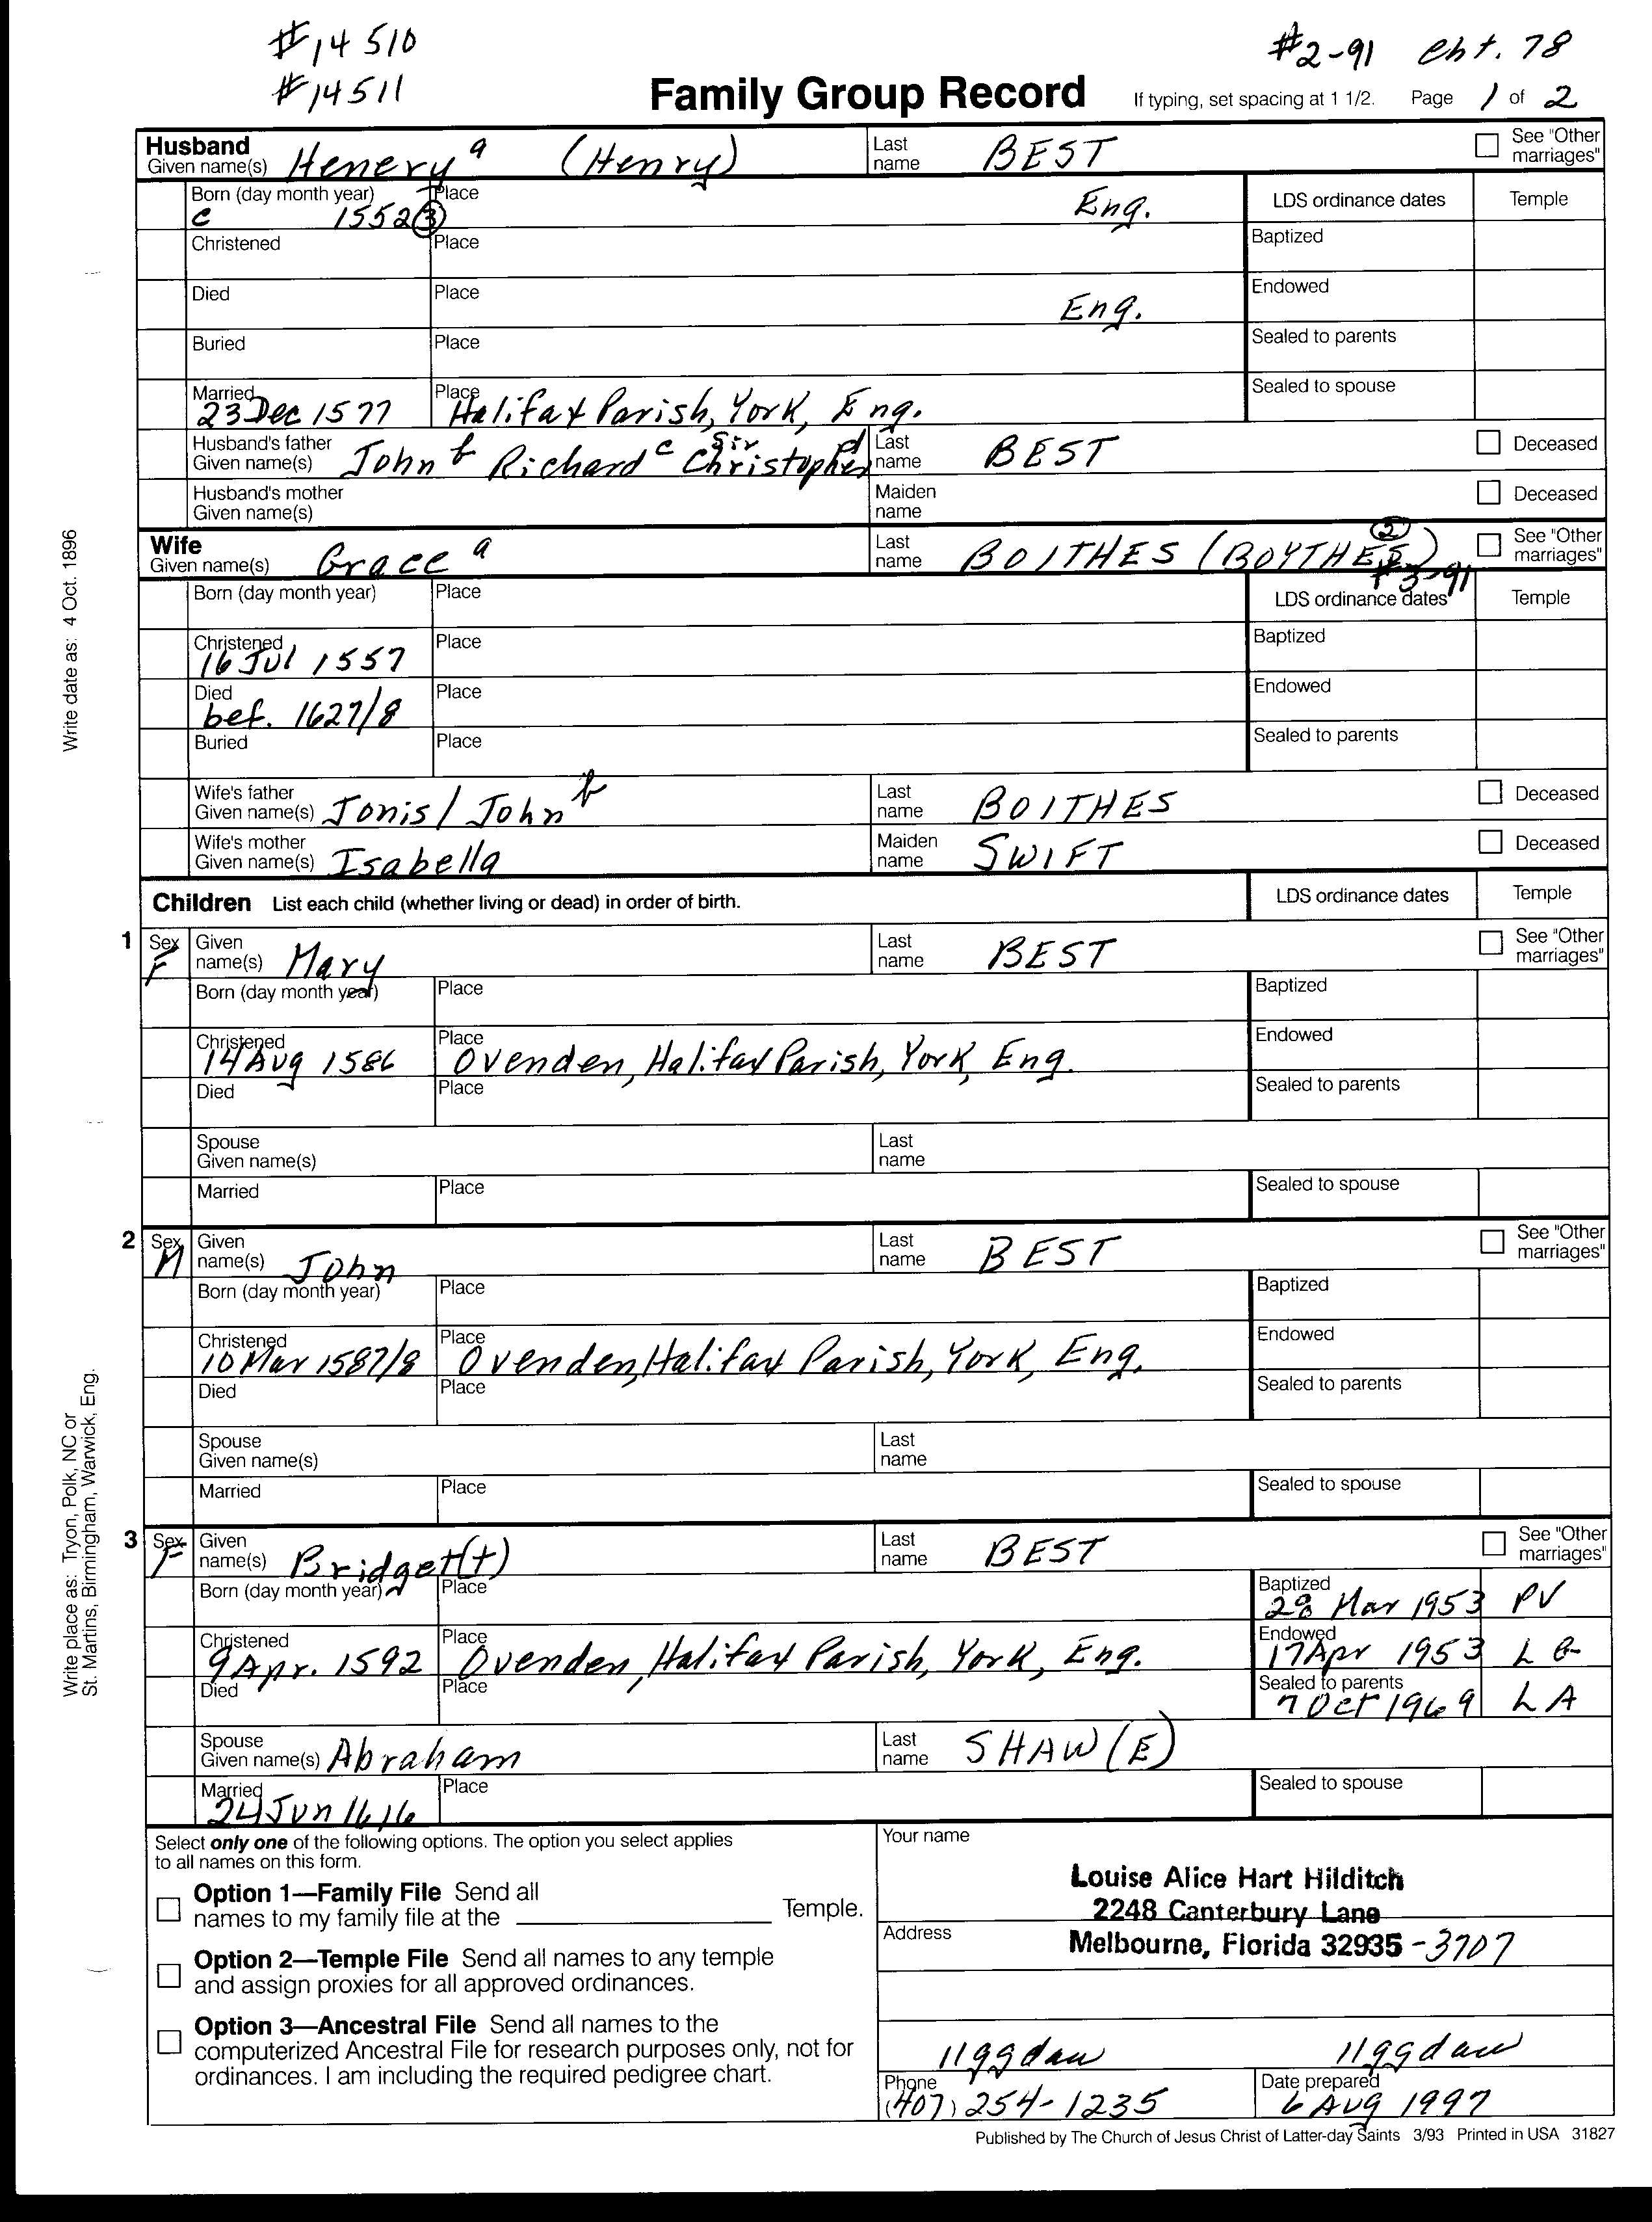 #14510
#14511
#2-91 cht. 78
Family Group Record
If typing, set spacing at 1 1/2. Page 1 of 2
Husband
Given name(s) Henery a (Henry)
Last name BEST
See "Other marriages"
Born (day month year) c 1552 (3)
Place Eng.
LDS ordinance dates
Temple
Christened
Place
Baptized
Died
Place Eng.
Endowed
Buried
Place
Sealed to parents
Married 23 Dec 1577
Place Halifax Parish, York, Eng.
Sealed to spouse
Husband's father Given name(s) John b Richard c Sir Christopher d
Last name BEST
Deceased
Husband's mother Given name(s)
Maiden name
Deceased
Wife
Given name(s) Grace a
Last name BOITHES (BOYTHES) (2)
#3-91
See "Other marriages"
Born (day month year)
Place
LDS ordinance dates
Temple
Christened 16 Jul 1557
Place
Baptized
Died bef. 1627/8
Place
Endowed
Buried
Place
Sealed to parents
Wife's father Given name(s) Jonis/ John b
Last name BOITHES
Deceased
Wife's mother Given name(s) Isabella
Maiden name SWIFT
Deceased
Children List each child (whether living or dead) in order of birth.
LDS ordinance dates
Temple
1 Sex F Given name(s) Mary
Last name BEST
See "Other marriages"
Born (day month year)
Place
Baptized
Christened 14 Aug 1586
Place Ovenden, Halifax Parish, York, Eng.
Endowed
Died
Place
Sealed to parents
Spouse Given name(s)
Last name
Married
Place
Sealed to spouse
2 Sex M Given name(s) John
Last name BEST
See "Other marriages"
Born (day month year)
Place
Baptized
Christened 10 Mar 1587/8
Place Ovenden, Halifax Parish, York, Eng.
Endowed
Died
Place
Sealed to parents
Spouse Given name(s)
Last name
Married
Place
Sealed to spouse
3 Sex F Given name(s) Bridget(t)
Last name BEST
See "Other marriages"
Born (day month year)
Place
Baptized 28 Mar 1953 PV
Christened 9 Apr. 1592
Place Ovenden, Halifax Parish, York, Eng.
Endowed 17 Apr 1953
Died
Place
Sealed to parents 7 Oct 1969 LA
Spouse Given name(s) Abraham
Last name SHAW (E)
Married 24 Jun 1616
Place
Sealed to spouse
Select only one of the following options. The option you select applies
to all names on this form.
Option 1—Family File Send all
names to my family file at the Temple.
Option 2—Temple File Send all names to any temple
and assign proxies for all approved ordinances.
Option 3—Ancestral File Send all names to the
computerized Ancestral File for research purposes only, not for
ordinances. I am including the required pedigree chart.
Your name
Louise Alice Hart Hilditch
2248 Canterbury Lane
Address
Melbourne, Florida 32935-3707
Phone (407) 254-1235
Date prepared 6 Aug 1997
Published by The Church of Jesus Christ of Latter-day Saints 3/93 Printed in USA 31827
Write date as: 4 Oct. 1896
Write place as: Tryon, Polk, NC or
St. Martins, Birmingham, Warwick, Eng.